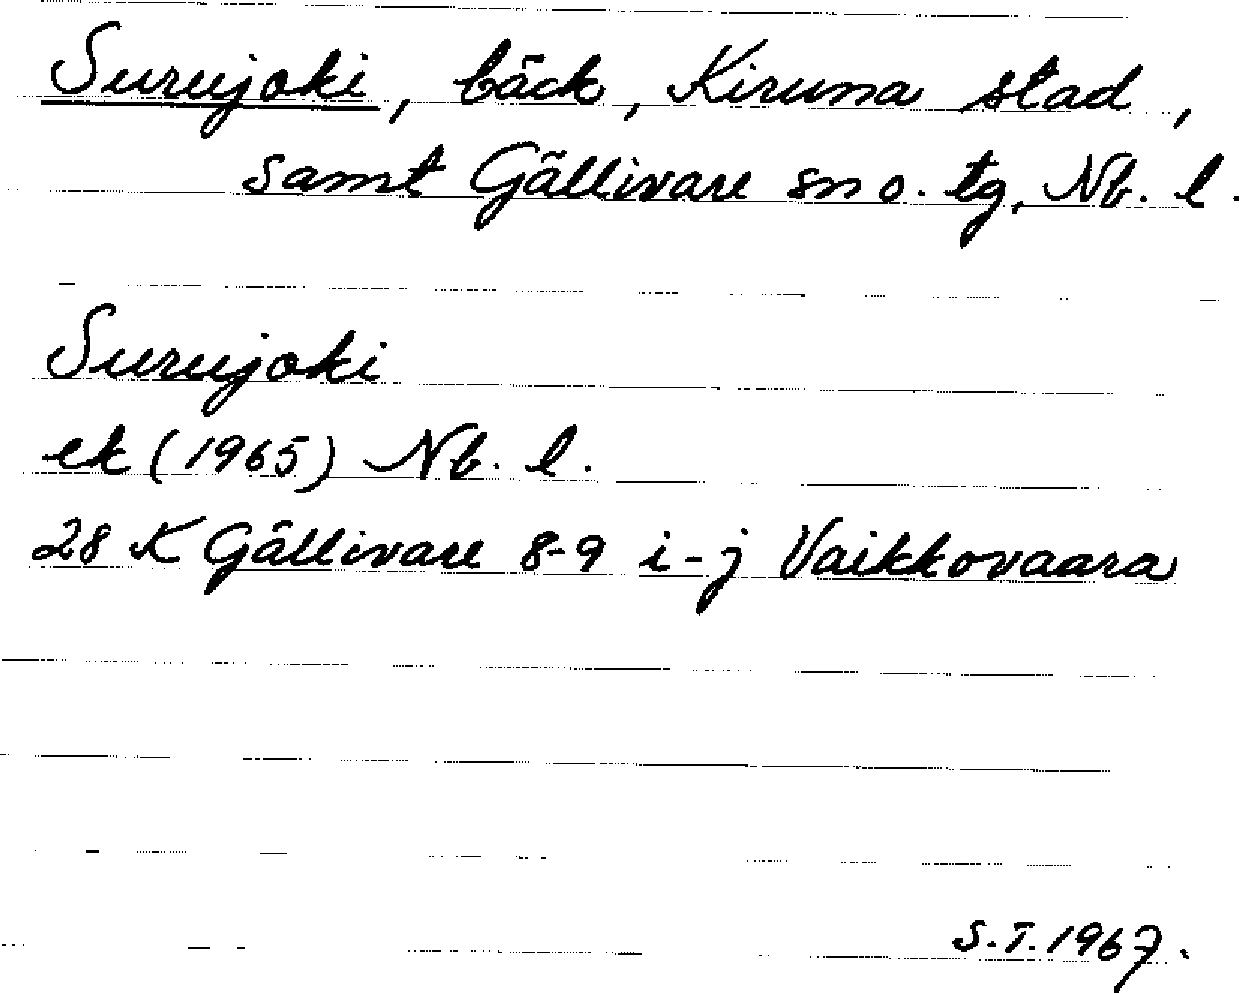 Surujoki, bäck, Kiruna stad,
samt Gällivare sn o. tg, Nb. l.
Surujoki
ek (1965) Nb. l.
28 K Gällivare 8-9 i-j Vaikkovaara
S.T. 1967.